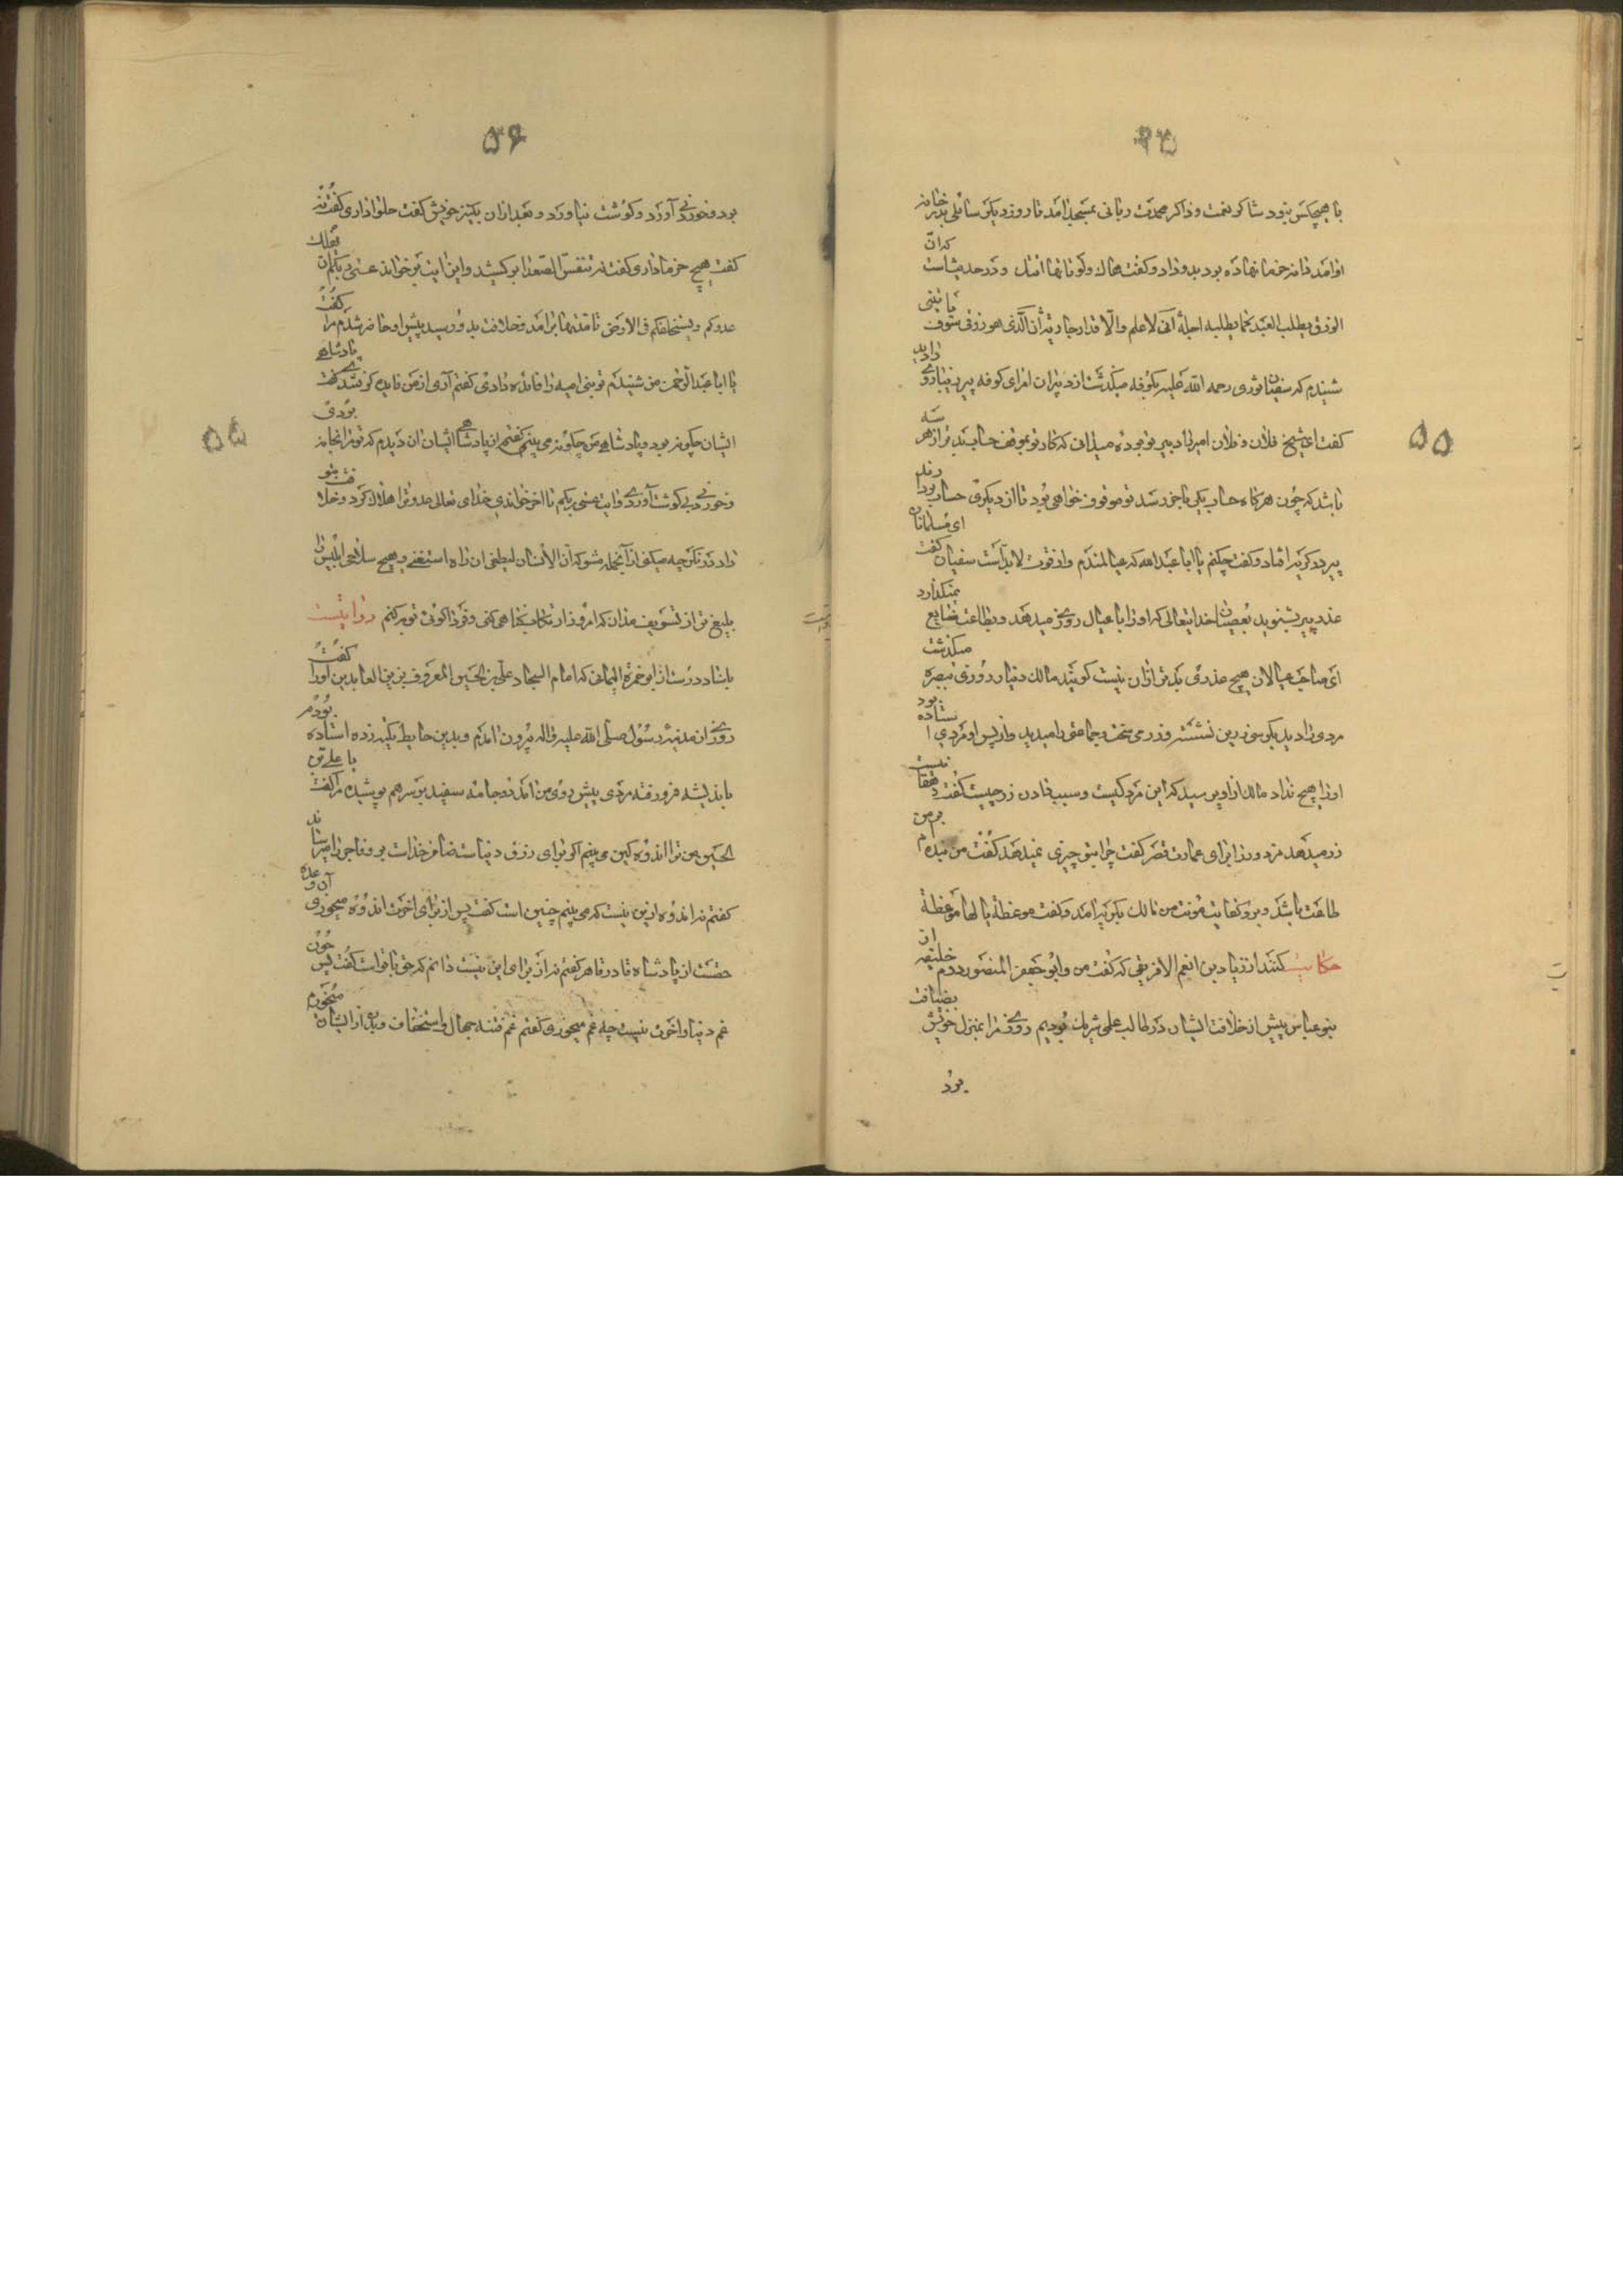 با هیچکس نبود شاکر نعمت و ذاکر محمدت ربانی بمسجد آمد تا روز دیکر سائلی بدر خانه
او آمد دانه خرما نهاده بود بدو داد و کفت هاك ولو تاتها اتتك و در حدیثاست که انّ
الرزق یطلب العبد کما یطلبه اجله انی لا علم والاقدار جاریة أن الذی هو رزقی سوف یاتینی
شنیدم که سفیان ثوری رحمه الله علیه بکوفه میکذشت از دبیران امرای کوفه پیر دیناری را دید
کفت ای شیخ فلان و فلان امیر را دبیر تو بوده میدانی که کار تو بموقف حساب بتر از هر سه
باشد که چون هرکاه حساب یکی باخر رسد تو موقوف خواهی بود تا از دیکری حساب بردارند
پیر در کریه افتاد و کفت چکنم یا ابا عبدالله که عیالمندم و از قوت لابد است سفیان کفت ای مسلمانان
عذر پیر بشنوید بعصیان خدایتعالی که او را با عیال روزی میدهد و بطاعت ضایع میکذارد
ای صاحب عیالان هیچ عذری بدتر ازان نیست کویند مالك دینار روزی ببصره میکذشت
مردی را دید بکرسی زرین نشسته و زر می سخت و جماعتی را میدید و از پس او مردی استاده بود
او را هیچ نداد مالك از او پرسید که این مرد کیست و سبب دادن زر چیست کفت رفقا نیست
زر میدهد مزدورانرا برای عمارت قصر کفت چرا بتو چیزی نمیدهد کفت من بنده ام بر من
طاعت باشد و برو کفایت مؤنت من مالك بکریه آمد و کفت موعظة یا لها موعظة
حکایت کنند از زیاد بن انعم الافریقی که کفت من و ابو جعفر المنصور دوم خلیفه از
بنو عباس پیش از خلافت ایشان در طالب علمی شریك بودیم روزی مرا بمنزل خویش بضیافت
برد
۵۵
۵۶
برد و خوردنی آورد و کوشت نیاورد و بعد ازان بکنیز خویش کفت حلوا داری کفت نه
کفت هیچ خرما داری کفت نه تنفس الصعدا برکشید و این ایت برخواند عسی ربکم ان یهلك
عدوکم و یستخلفکم فی الارض تا مدتها برآمد و خلافت بدو رسید پیش او حاضر شدم مرا کفت
یا ابا عبد الرحمن من شنیدم تو بنی امیه را فائده دادی کفتم آری از من فایده کرفتندی کفت پادشاهی
ایشان چکونه بود و پادشاهی من چکونه می بینی کفتم از پادشاهی ایشان ان دیدم که تو مرا بخانه بردی
و خوردنی بی کوشت آوردی و ایت عسی ربکم تا اخر خواندی خدای تعالی عدو ترا هلاك کرد و خلافت بتو
داد در نکر چه میکنی از آنجمله مشو که ان الانسان لیطغی ان راه استغنی و هیچ سلاحی ابلیس را
بلیغ تر از تسویف مدان که امروز ارتکاب بکناهی کنی و فردا کوئی توبه کنم روایتست
باسناد درست از ابو حمزة الثمالی که امام السجاد علی بن الحسین المعروف بزین العابدین اورا کفت
روزی از مدینه رسول صلی الله علیه و اله بیرون آمدم و بدین حایط تکیه زده استاده بودم
باندیشه فرو رفته مردی پیش روی من آمد دو جامه سفید بر سر هم پوشیده مرا کفت یا علی بن
الحسین من ترا اندوهکین می بینم اکر برای رزق دنیاست ضامن خداست بر و فاجر را میرساند
کفتم نه اندوه ازین نیست که می بینم چنین است کفت پس از برای اخرت اندوه میخوری آن وعده
حقست از پادشاه قادر قاهر کفتم نه از برای این نیست دانم که حق با او است کفت پس چون
غم دنیا و اخرت نیست چه غم میخوری کفتم غم فتنه جهال و استخفاف و بد از ایشان میخورم
۵۵